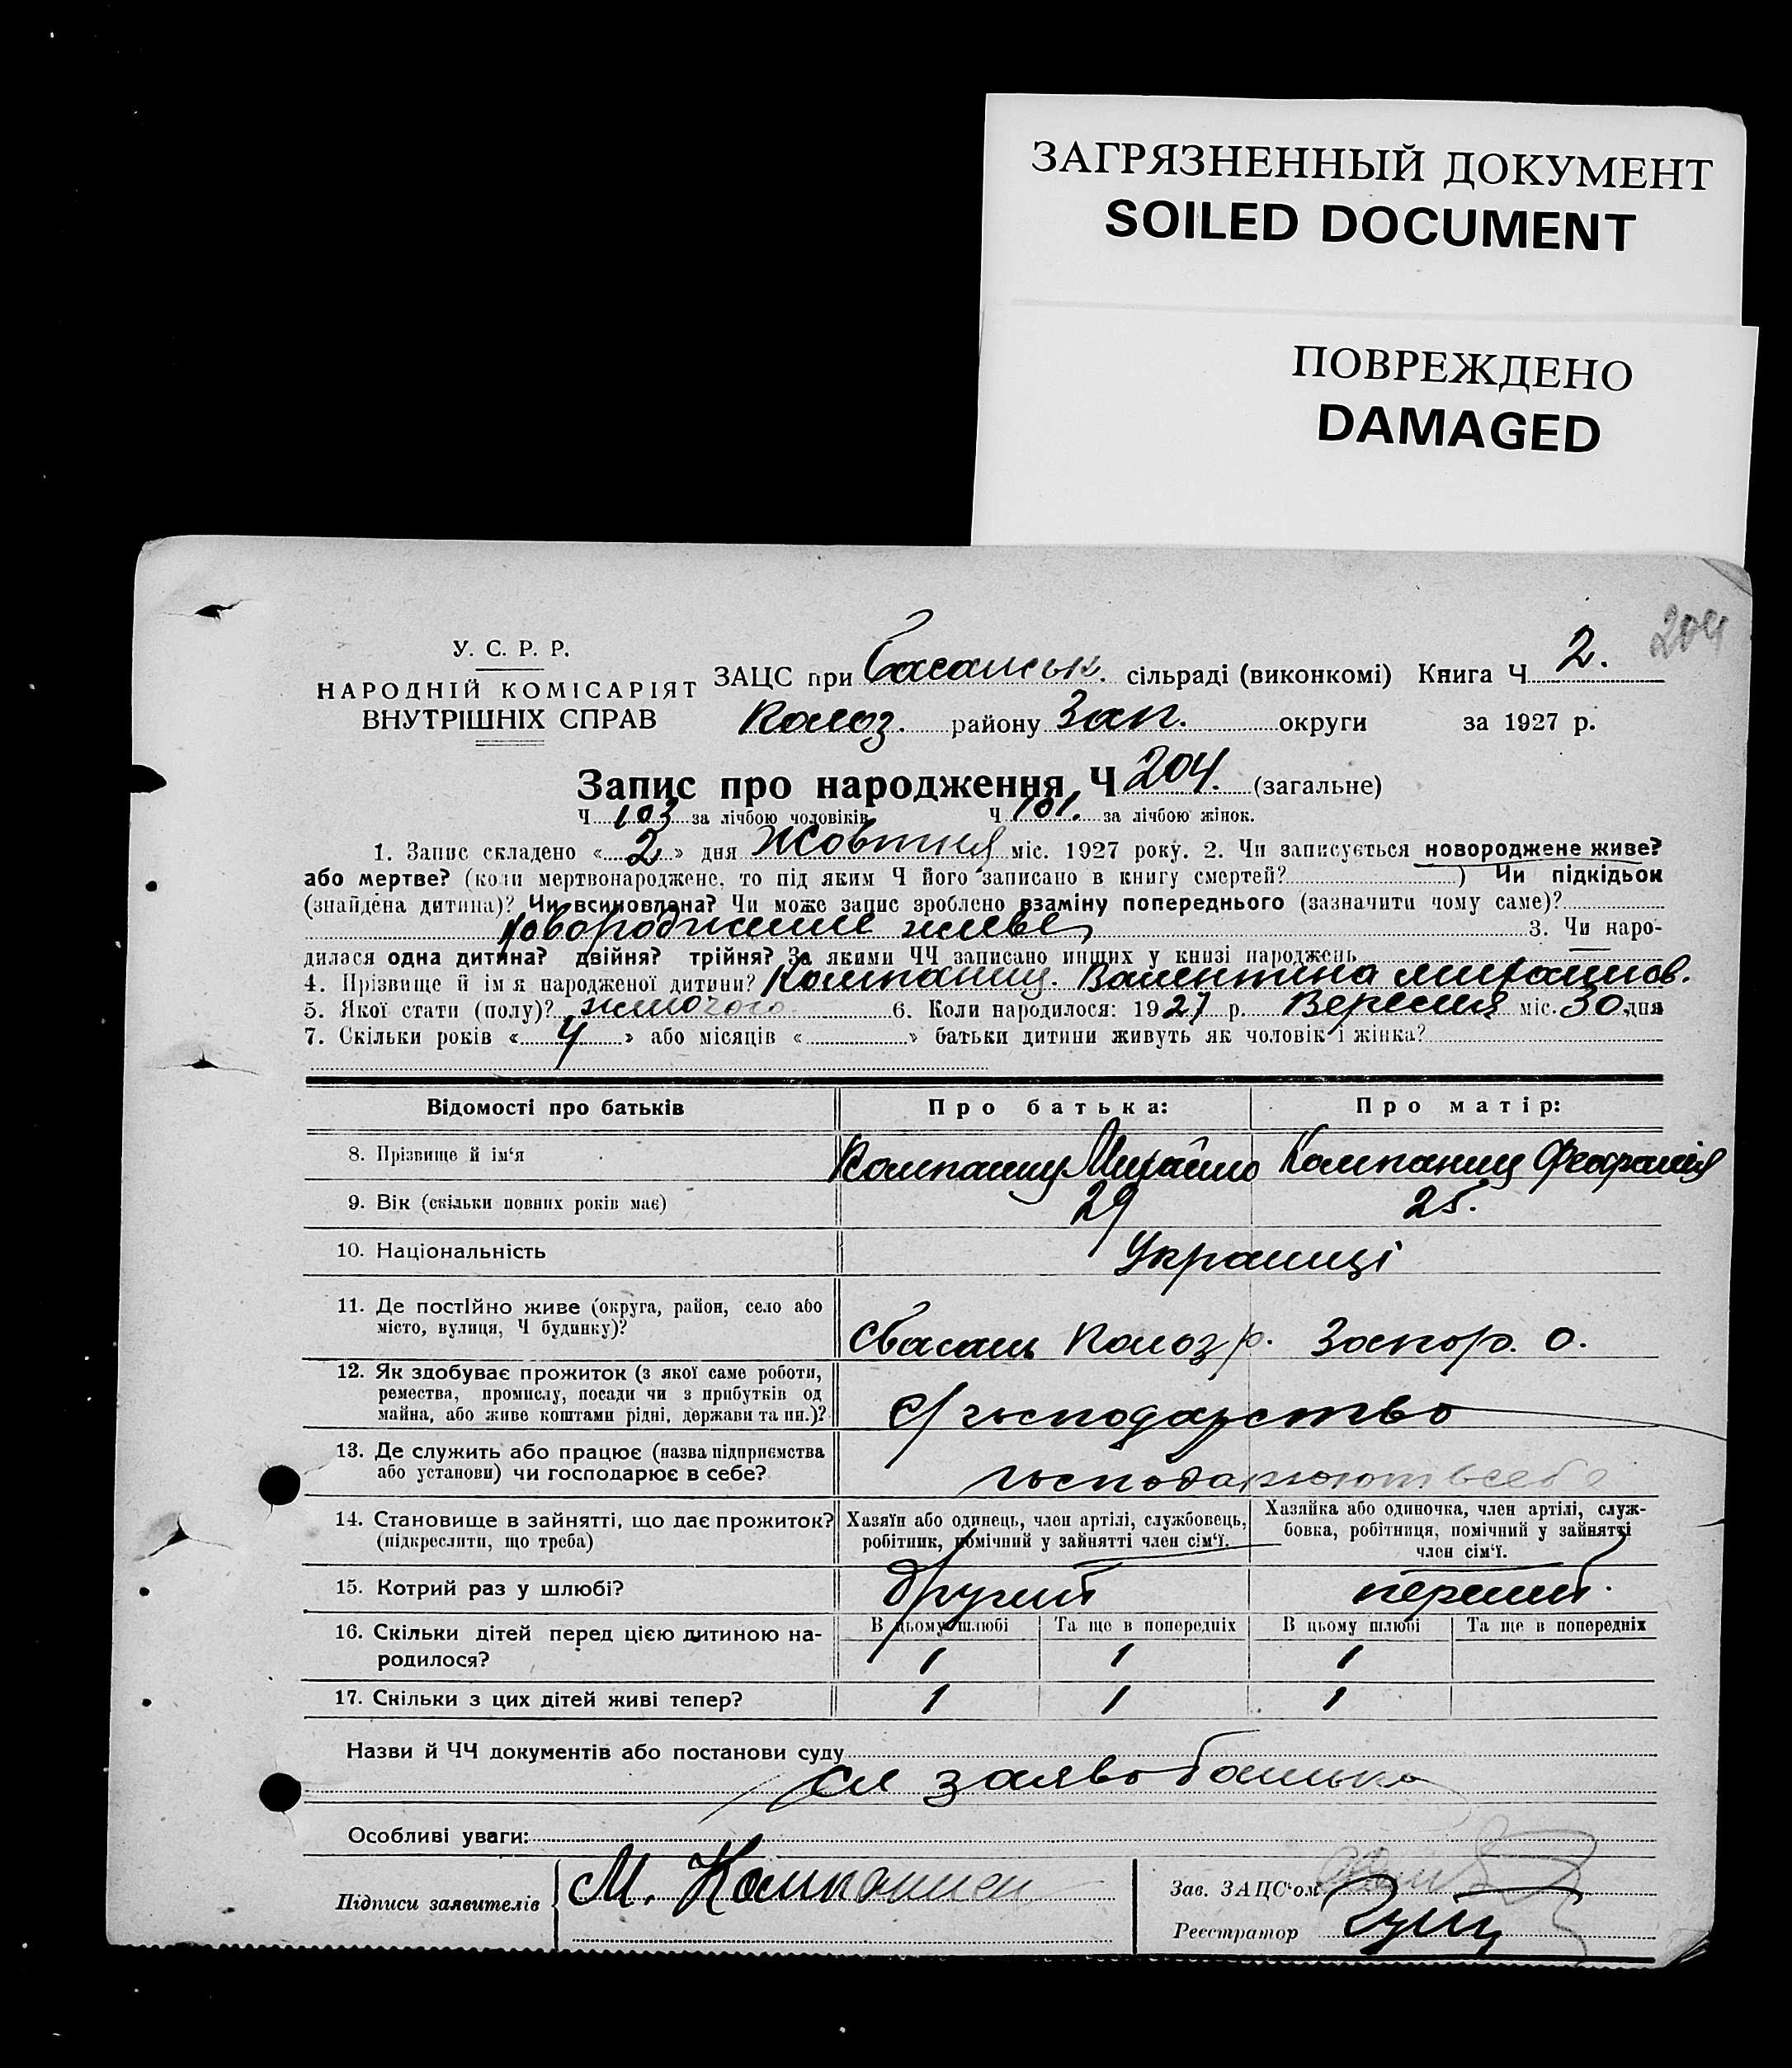 ЗАГРЯЗНЕННЫЙ ДОКУМЕНТ
SOILED DOCUMENT
ПОВРЕЖДЕНО
DAMAGED
204
У. С. Р. Р.
НАРОДНІЙ КОМІСАРІЯТ
ВНУТРІШНІХ СПРАВ
ЗАЦС при Басанськ. сільраді (виконкомі) Книга Ч 2.
Колоз. району Зап. округи за 1927 р.
Запис про народження Ч 204. (загальне)
Ч 103 за лічбою чоловіків Ч 101. за лічбою жінок.
1. Запис складено « 2 » дня Жовтня міс. 1927 року. 2. Чи записується новороджене живе?
або мертве? (коли мертвонароджене, то під яким Ч його записано в книгу смертей? ) Чи підкідьок
(знайдена дитина)? Чи всиновлена? Чи може запис зроблено взаміну попереднього (зазначити чому саме)?
новороджение живе 3. Чи наро-
дилася одна дитина? двійня? трійня? За якими ЧЧ записано инших у книзі народжень
4. Прізвище й ім'я народженої дитини? Компаниц. Валентина Михайлов.
5. Якої стати (полу)? жиночого 6. Коли народилося: 1927 р. Вересня міс. 30 дня
7. Скільки років « 4 » або місяців « » батьки дитини живуть як чоловік і жінка?
Відомості про батьків Про батька: Про матір:
8. Прізвище й ім'я Компаниц Михайло Компаниц Феофанія
9. Вік (скільки повних років має) 29 25.
10. Національність Украинці
11. Де постійно живе (округа, район, село або
місто, вулиця, Ч будинку)? с Басань Колоз р. Запор. о.
12. Як здобуває прожиток (з якої саме роботи,
ремества, промислу, посади чи з прибутків од
майна, або живе коштами рідні, держави та ин.)? с/господарство
13. Де служить або працює (назва підприємства
або установи) чи господарює в себе? господарюют в себе
14. Становище в зайнятті, що дає прожиток?
(підкреслити, що треба)
Хазяїн або одинець, член артілі, службовець,
робітник, помічний у зайнятті член сім'ї.
Хазяйка або одиночка, член артілі, служ-
бовка, робітниця, помічний у зайнятті
член сім'ї.
15. Котрий раз у шлюбі? другий перший.
16. Скільки дітей перед цією дитиною на-
родилося?
В цьому шлюбі Та ще в попередніх В цьому шлюбі Та ще в попередніх
1 1 1
17. Скільки з цих дітей живі тепер? 1 1 1
Назви й ЧЧ документів або постанови суду
заява батька
Особливі уваги:
Підписи заявителів М. Компаниец
Зав. ЗАЦС'ом
Реєстратор